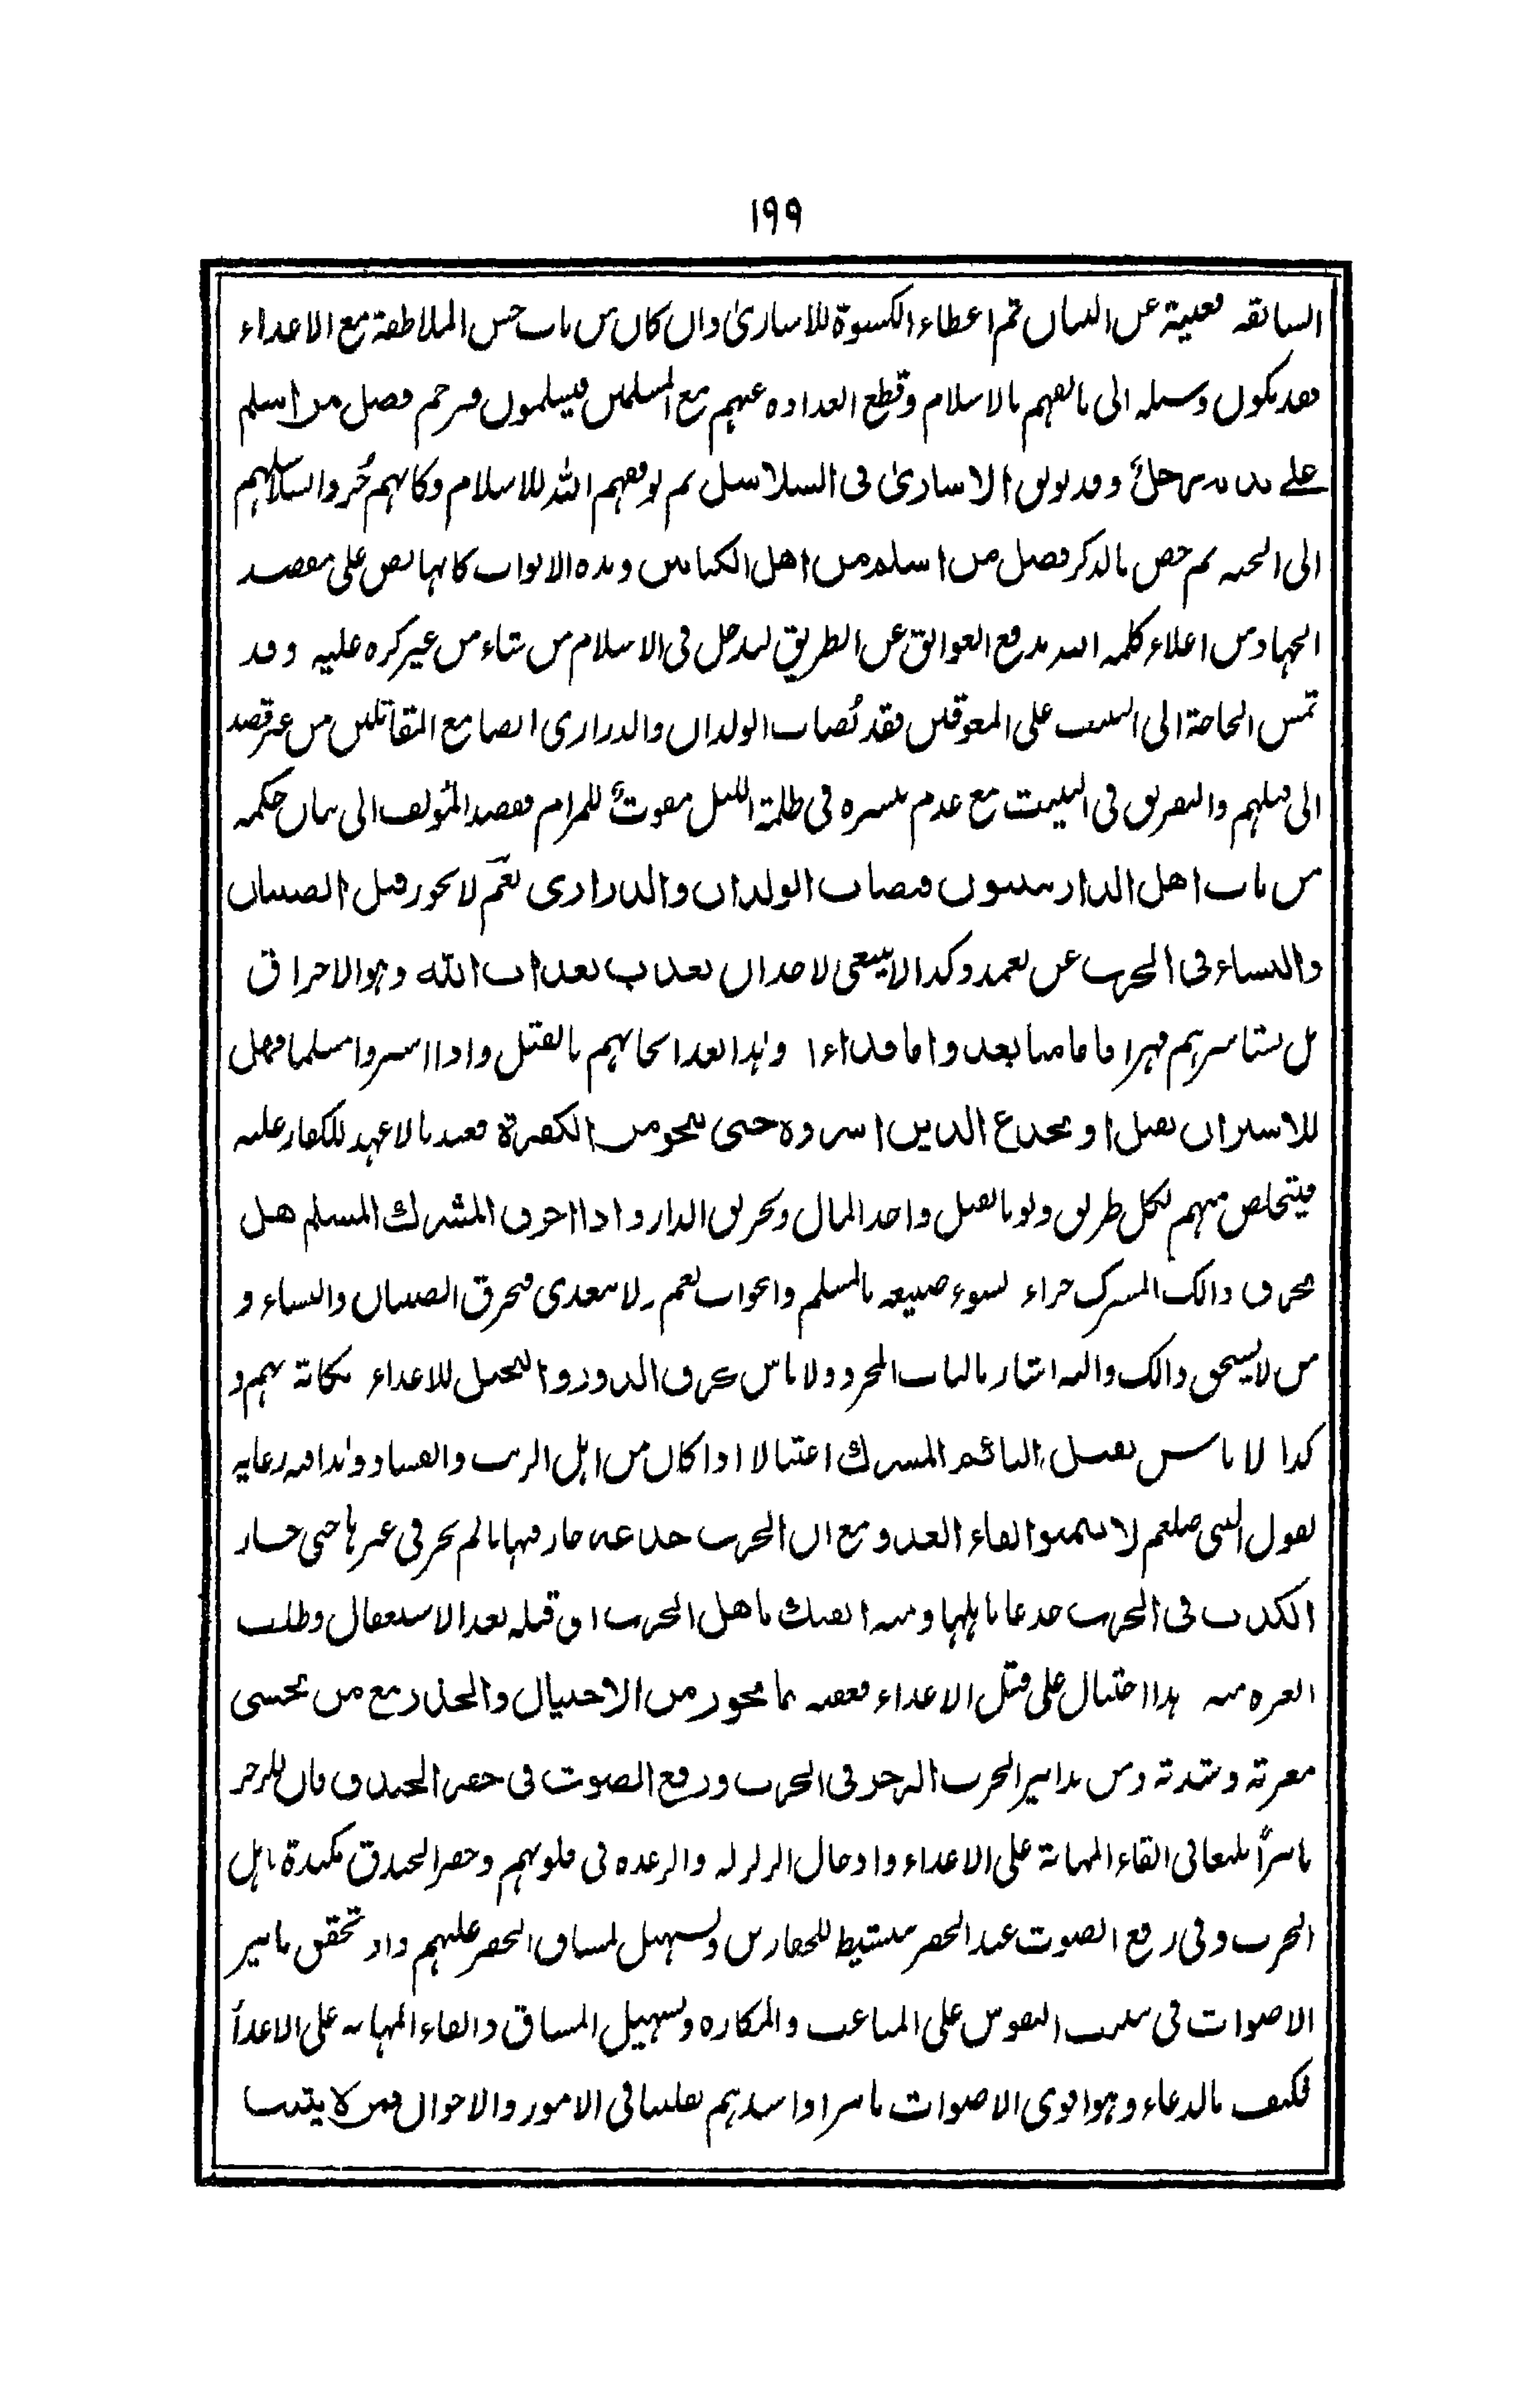 ١٩٩
السابقة مغنية عن البيان ثم اعطاء الكسوة للاسارىٰ وان كان من باب حسن الملاطفة مع الاعداء
فقد يكون وسيلة الى تاليفهم بالاسلام وقطع العداوة عنهم مع المسلمين فيسلمون فترجم فصل من اسلم
علے يديه رجلٌ وقد يوثق الاسارىٰ فى السلاسل ثم يوفقهم الله للاسلام وكانهم جُروا بسلاسلهم
الى الجنة ثم خص بالذكر فصل من اسلم من اهل الكتابين وهذه الابواب كانها نص على مقصد
الجهاد من اعلاء كلمة الله بدفع العوائق عن الطريق ليدخل فى الاسلام من شاء من غير كره عليه وقد
تمس الحاجة الى التبييت على المعوقين فقد تُصاب الولدان والذرارى ايضا مع المقاتلين من غير قصد
الى قتلهم والتفريق فى التبييت مع عدم تيسره فى ظلمة الليل مفوتٌ للمرام فقصد المؤلف الى بيان حكمه
من باب اهل الدار يبيتون فيصاب الولدان والذرارى نعم لا يجوز قتل الصبيان
والنساء فى الحرب عن تعمد وكذا لا ينبغى لاحد ان يعذب بعذاب الله وهو الاحراق
بل يستاسرهم قهرا فاما منا بعد واما فداءا وهذا بعد اثخانهم بالقتل واذا اسروا مسلما فهل
للاسير ان يقتل او يخدع الذين اسروه حتى ينجو من الكفرة فعنده لا عهد للكفار عليه
فيتخلص منهم بكل طريق ولو بالقتل واخذ المال وتحريق الدار واذا احرق المشرك المسلم هل
يحرق ذالك المشرك جزاء لسوء صنيعه بالمسلم والجواب نعم ولا يتعدى فيحرق الصبيان والنساء و
من لا يستحق ذالك واليه اشار بالباب المجرد ولا باس بحرق الدور والنخيل للاعداء نكاية بهم و
كذا لا باس بقتل النائم المشرك اغتيالا اذا كان من اهل الريب والفساد وهذا فيه رعاية
لقول النبى صلعم لا تتمنوا لقاء العدو ومع ان الحرب خدعة جاز فيها ما لم يجز فى غيرها حتى جاز
الكذب فى الحرب خدعا باهلها ومنه الفتك باهل الحرب اى قتله بعد الاستغفال وطلب
الغرة منه هذا احتيال على قتل الاعداء فعقبه بما يجوز من الاحتيال والحذر مع من يخشى
معرته وشدته ومن تدابير الحرب الرجز فى الحرب ورفع الصوت فى حفر الخندق فان للرجز
تاثيراً بليغا فى القاء المهابة على الاعداء وادخال الزلزلة والرعدة فى قلوبهم وحفر الخندق مكيدة باهل
الحرب وفى رفع الصوت عند الحفر تنشيط للحفارين وتسهيل لمشاق الحفر عليهم واذ تحقق تاثير
الاصوات فى تثبيت النفوس على المتاعب والمكاره وتسهيل المشاق والقاء المهابة على الاعداء
فكيف بالدعاء وهو اقوى الاصوات تاثيرا واشدهم تقلبا فى الامور والاحوال فمن لا يثبت